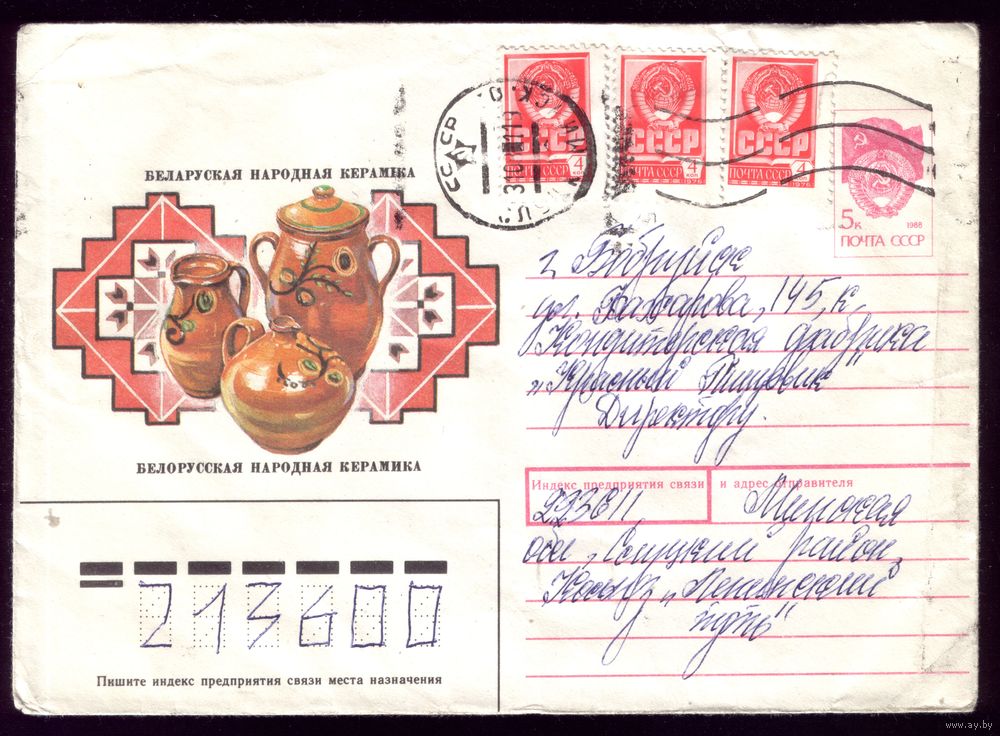 БЕЛАРУСКАЯ НАРОДНАЯ КЕРАМІКА
БЕЛОРУССКАЯ НАРОДНАЯ КЕРАМИКА
СССР
4 КОП
ПОЧТА СССР
1976
СССР
4 КОП
ПОЧТА СССР
1976
СССР
4 КОП
ПОЧТА СССР
1976
5к
1988
ПОЧТА СССР
СССР
г. Бобруйск
ул. Бахарова, 145, к,
Кондитерская фабрика
„Красный Пищевик"
Директору.
Индекс предприятия связи и адрес отправителя
Минская
обл, Слуцкий район,
Колхоз „Ленинский
путь"
213600
Пишите индекс предприятия связи места назначения
www.ay.by